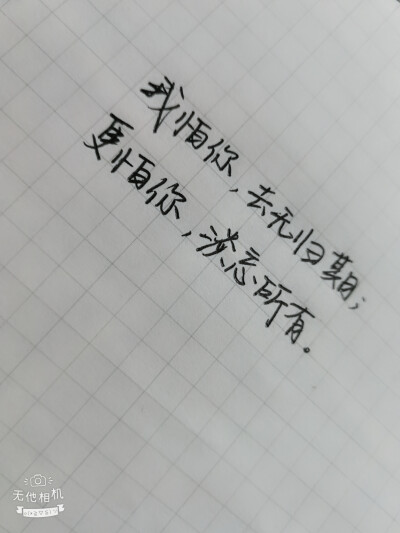 我怕你，去无归期；
更怕你，淡忘所有。
无他相机